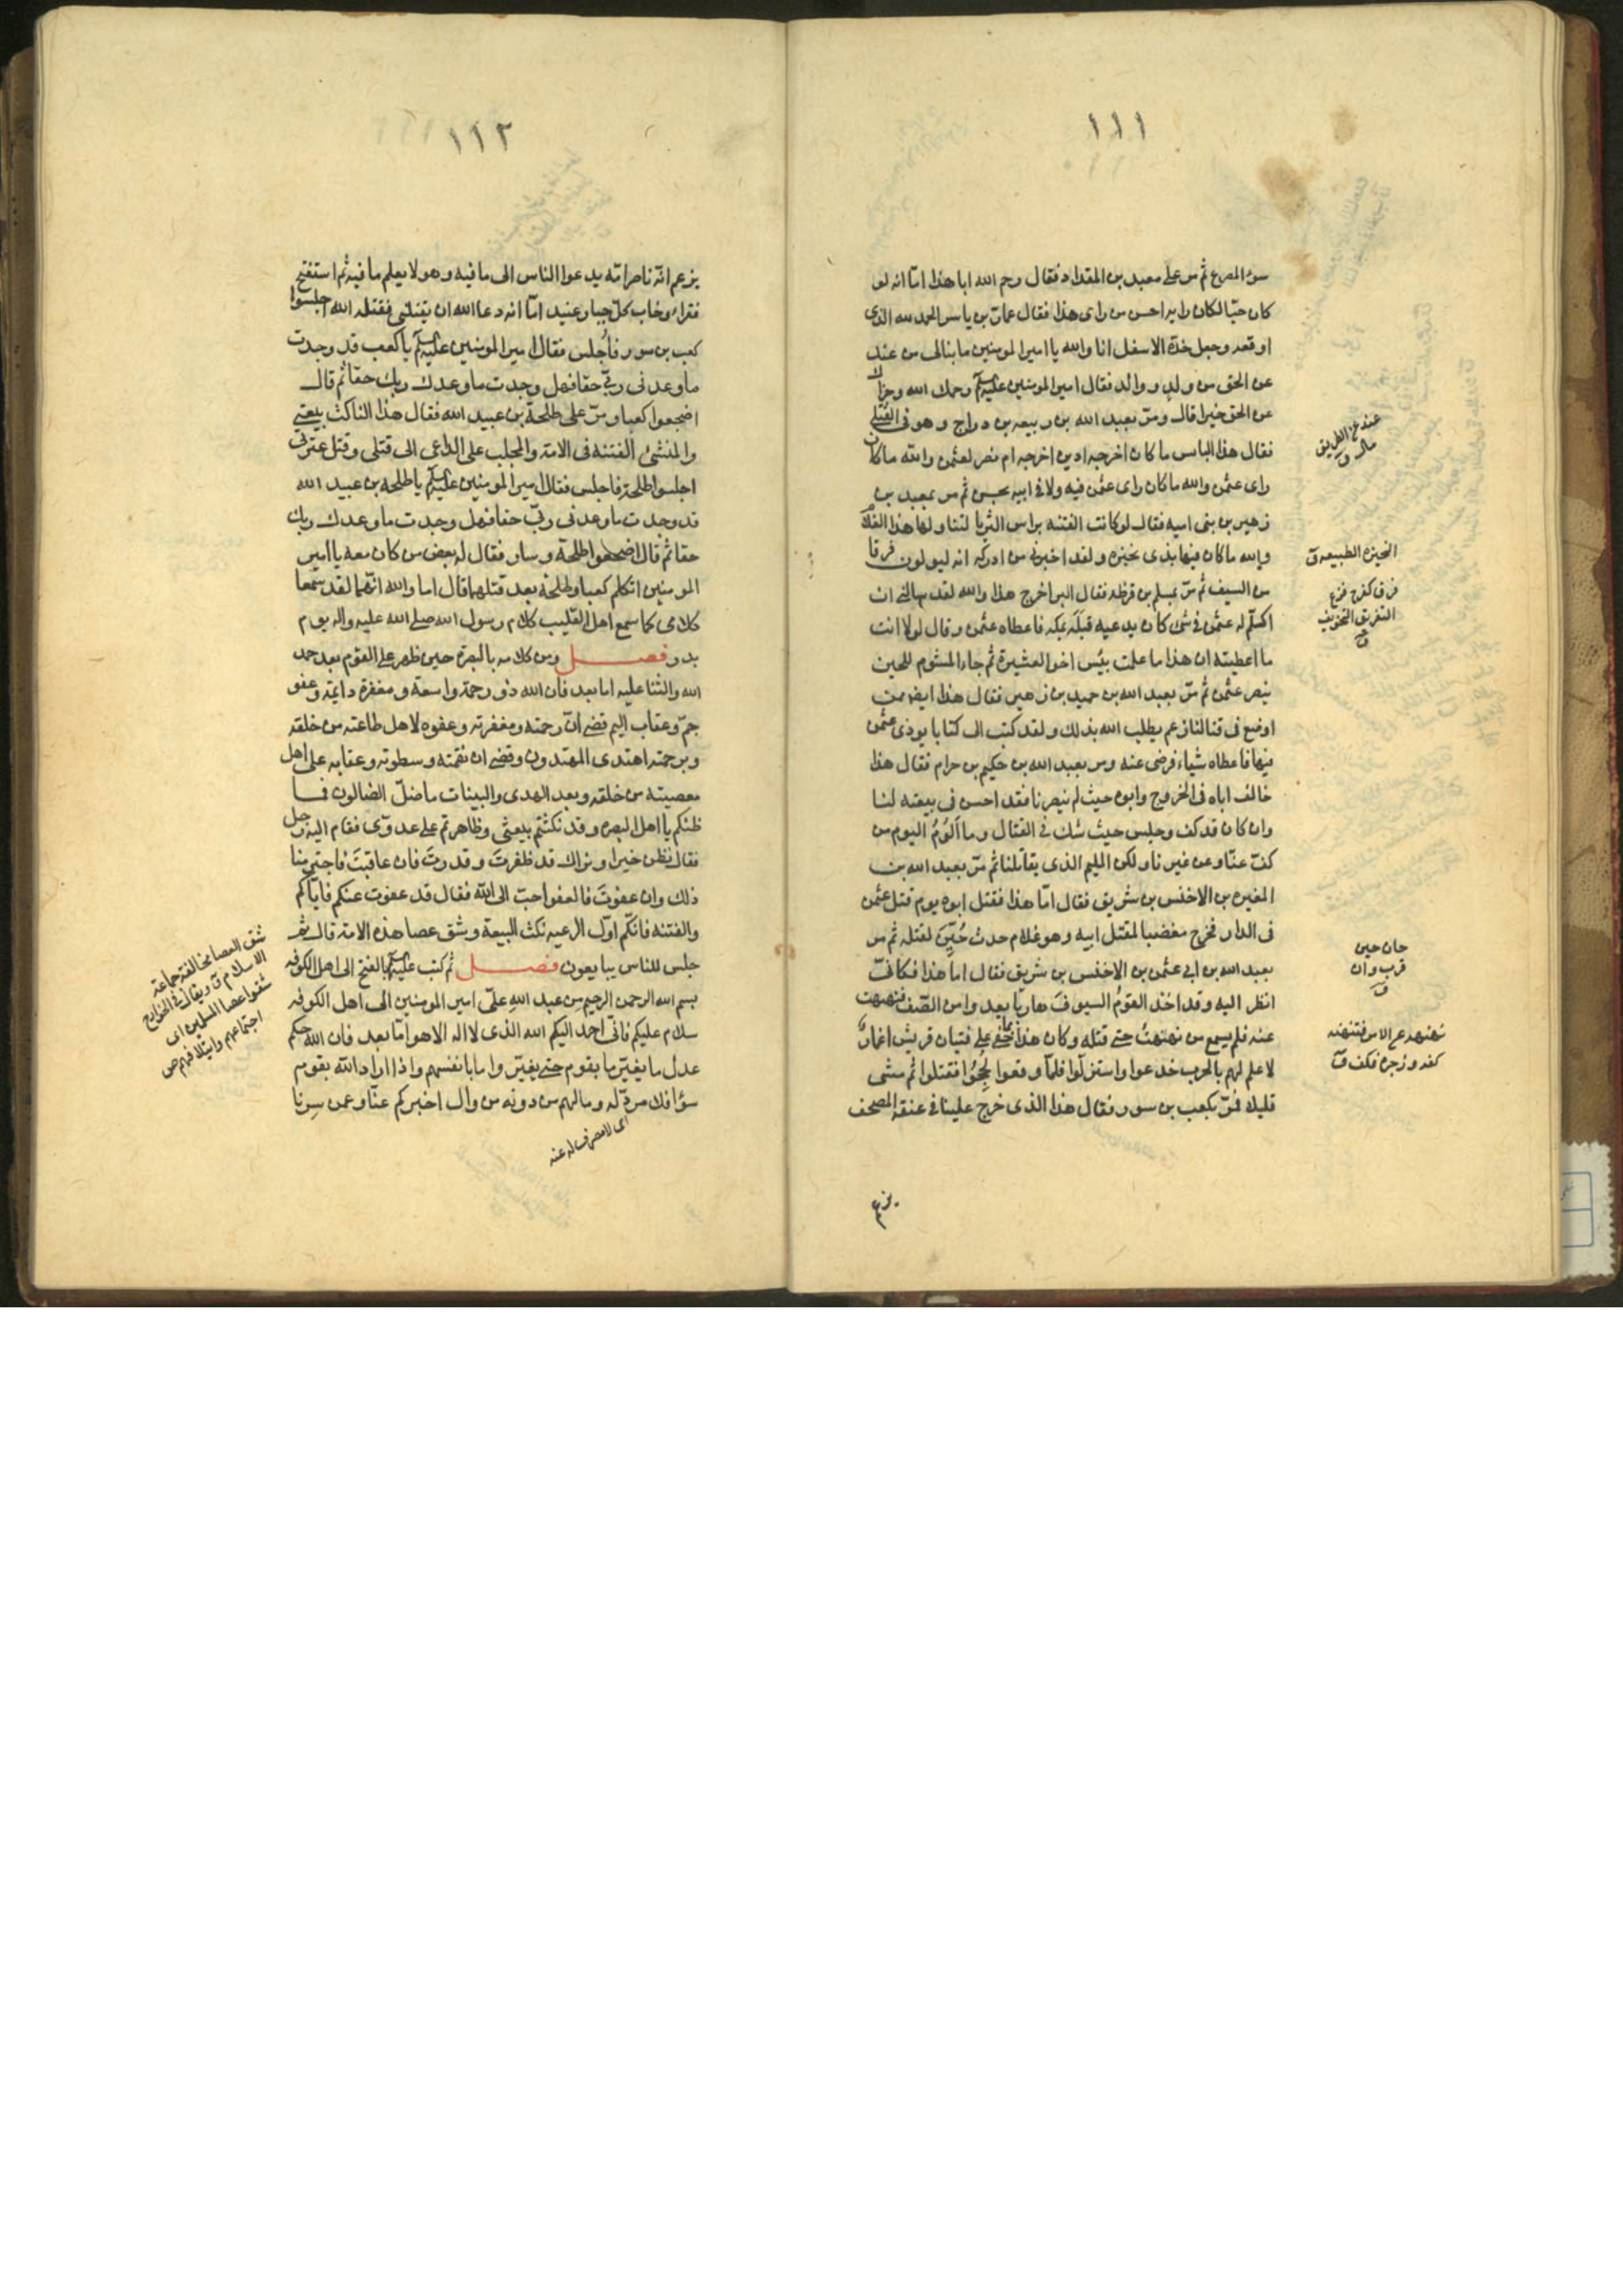 ١١١
سوء المصرع ثم مر على معبد بن المقداد فقال رحم الله ابا هذا اما انه لو
كان حيا لكان رايه احسن من راى هذا فقال عمار بن ياسر الحمد لله الذى
اوقعه وجعل خده الاسفل انا والله يا امير المومنين ما بنالى من عند
عن الحق من ولد و والد فقال امير المومنين عليه السلم رحمك الله وجزاك
عن الحق خيرا قال ومر بعبد الله بن ربيعه بن دراج وهو فى القتلى
فقال هذا الباس ما كان اخرجه ادين اخرجه ام نصر لعثمن والله ما كان
راى عثمن والله ما كان راى عثمن فيه ولا فى ابيه بحسن ثم مر بمعبد بن
زهير بن بنى اميه فقال لو كانت الفتنه براس الثريا لتناولها هذا الغلام
والله ما كان فيها بذى نخيزه ولقد اخبرنى من ادركه انه ليولون فرقا
من السيف ثم مر بمسلم بن قرظه فقال البر اخرج هذا والله لقد سالنى ان
اكلم له عثمن فى شئ كان يدعيه قبله بمكه فاعطاه عثمن وقال لولا انت
ما اعطيته ان هذا ما علمت بئس اخو العشيرة ثم جاء المشوم للحين
ينصر عثمن ثم مر بعبد الله بن حميد بن زهير فقال هذا ايضا ممن
اوضع فى قتالنا زعم يطلب الله بذلك ولقد كتب الى كتابا يوذى عثمن
فيها فاعطاه شياء فرضى عنه ومر بعبد الله بن حكيم بن حرام فقال هذا
خالف اباه فى الخروج وابوه حيث لم ينصرنا فقد احسن فى بيعته لنا
وان كان قد كف وجلس حيث شك فى القتال وما الوم اليوم من
كف عنا وعن غيرنا ولكن المليم الذى يقاتلنا ثم مر بعبد الله بن
المغيره بن الاخنس بن شريق فقال اما هذا فقتل ابوه يوم قتل عثمن
فى الدار فخرج مغضبا لمقتل ابيه وهو غلام حدث حُيّن لقتله ثم مر
بعبد الله بن ابى عثمن بن الاخنس بن شريق فقال اما هذا فكانى
انظر اليه وقد اخذ القوم السيوف هاربا يعد وامن الصف فنهنهت
عنه فلم يسمع من نهنهت حتى قتله وكان هذا مما خفى على فتيان قريش اغمار
لا علم لهم بالحرب خدعوا واستزلوا فلما وقفوا لججوا فقتلوا ثم مشى
قليلا فمر بكعب بن سور فقال هذا الذى خرج علينا فى عنقه المصحف
يزعم
عند عن الطريق
مال ق
النحيزه الطبيعه ق
فرقا كفرح فزع
التفريق التخويف
ق
حان حين
قرب وان
ق
نهنهه عن الامر فتنهنه
كفه وزجره فكف ق
١١٢
يزعم انه ناصر امه يدعوا الناس الى ما فيه وهو لا يعلم ما فيه ثم استفتح
فقراء وخاب كل جبار عنيد اما انه دعا الله ان يقتلنى فقتله الله اجلسوا
كعب بن سور فاجلس فقال امير المومنين عليه السلم يا كعب قد وجدت
ما وعدنى ربى حقا فهل وجدت ما وعدك ربك حقا ثم قال
اضجعوا كعبا ومر على طلحة بن عبيد الله فقال هذا الناكث بيعتى
والمنشئ الفتنه فى الامة والمجلب على الداعى الى قتلى وقتل عترتى
اجلسوا طلحة فاجلس فقال امير المومنين عليه السلم يا طلحه بن عبيد الله
قد وجدت ما وعدنى ربى حقا فهل وجدت ما وعدك ربك
حقا ثم قال اضجعوا طلحة وسار فقال له بعض من كان معه يا امير
المومنين اتكلم كعبا وطلحة بعد قتلهما قال اما والله انهما لقد سمعا
كلامى كما سمع اهل القليب كلام رسول الله صلى الله عليه واله يوم
بدر فصل ومن كلامه بالبصرة حين ظهر على القوم بعد حمد
الله والثنا عليه اما بعد فان الله ذو رحمة واسعة ومغفرة دايمة وعفو
جم وعقاب اليم قضى ان رحمته ومغفرته وعفوه لاهل طاعته من خلقه
وبرحمته اهتدى المهتدون وقضى ان نقمته وسطوته وعقابه على اهل
معصيته من خلقه وبعد الهدى والبينات ما ضل الضالون فما
ظنكم يا اهل البصره وقد نكثتم بيعتى وظاهرتم على عدوى فقام اليه رجل
فقال نظن خيرا ونراك قد ظفرت وقدرت فان عاقبت فاجترمنا
ذلك وان عفوت فالعفو احب الى الله فقال قد عفوت عنكم فاياكم
والفتنه فانكم اول الرعيه نكث البيعة وشق عصا هذه الامة قال ثم
جلس للناس يبايعون فصل ثم كتب عليه السلم بالفتح الى اهل الكوفه
بسم الله الرحمن الرحيم من عبد الله على امير المومنين الى اهل الكوفه
سلام عليكم فانى احمد اليكم الله الذى لا اله الا هو اما بعد فان الله حكم
عدل ما يغير ما بقوم حتى يغيروا ما بانفسهم واذا اراد الله بقوم
سؤا فلا مرد له وما لهم من دونه من وال اخبركم عنا وعمن سرنا
اى لا مصرف له عنه
شق العصا مخالفة جماعة
الاسلام ق ويقال فى الخوارج
شقوا عصا المسلمين اى
اجتماعهم وايتلافهم ص